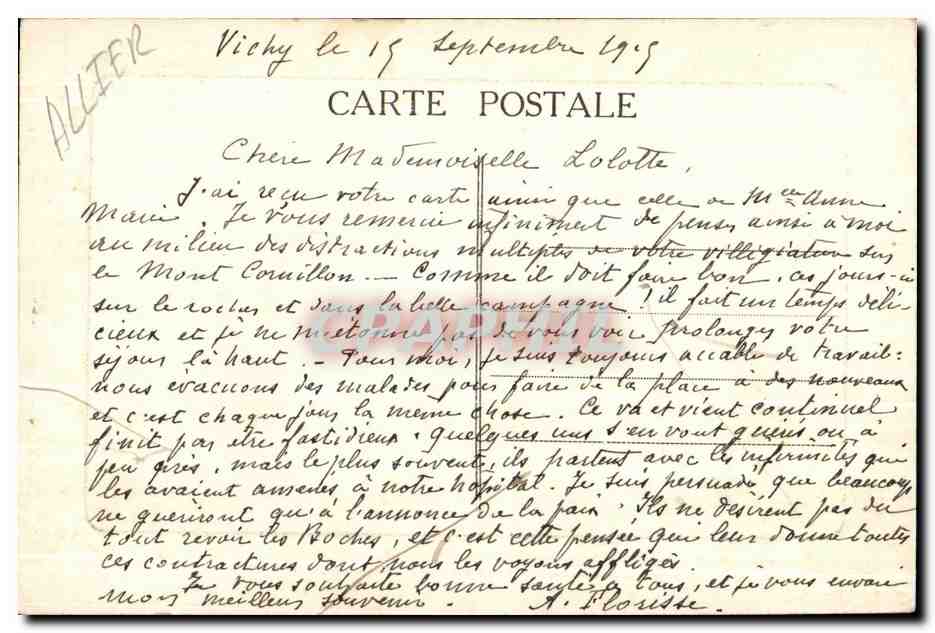 ALLIER
Vichy le 15 septembre 1915
CARTE POSTALE
Chère Mademoiselle Lolotte,
J'ai reçu votre carte ainsi que celle de Melle Anne
Marie. Je vous remercie infiniment de penser ainsi à moi
au milieu des distractions multiples de votre villégiature sur
le Mont Cornillon. — Comme il doit faire bon, ces jours-ci
sur le rocher et dans la belle campagne ! il fait un temps déli-
cieux et je ne m'étonne pas de vous voir prolonger votre
séjour là haut. — Pour moi, je suis toujours accablé de travail :
nous évacuons des malades pour faire de la place à des nouveaux
et c'est chaque jour la même chose. Ce va et vient continuel
finit par être fastidieux. Quelques uns s'en vont guéris ou à
peu près, mais le plus souvent, ils partent avec les infirmités qui
les avaient amenés à notre hôpital. Je suis persuadé que beaucoup
ne guériront qu'à l'annonce de la paix. Ils ne désirent pas du
tout revoir les Boches, et c'est cette pensée qui leur donne toutes
ces contractures dont nous les voyons affligés.
Je vous souhaite bonne santé à tous, et je vous envoie
mon meilleur souvenir. A. Florisse.
CPAPHIL